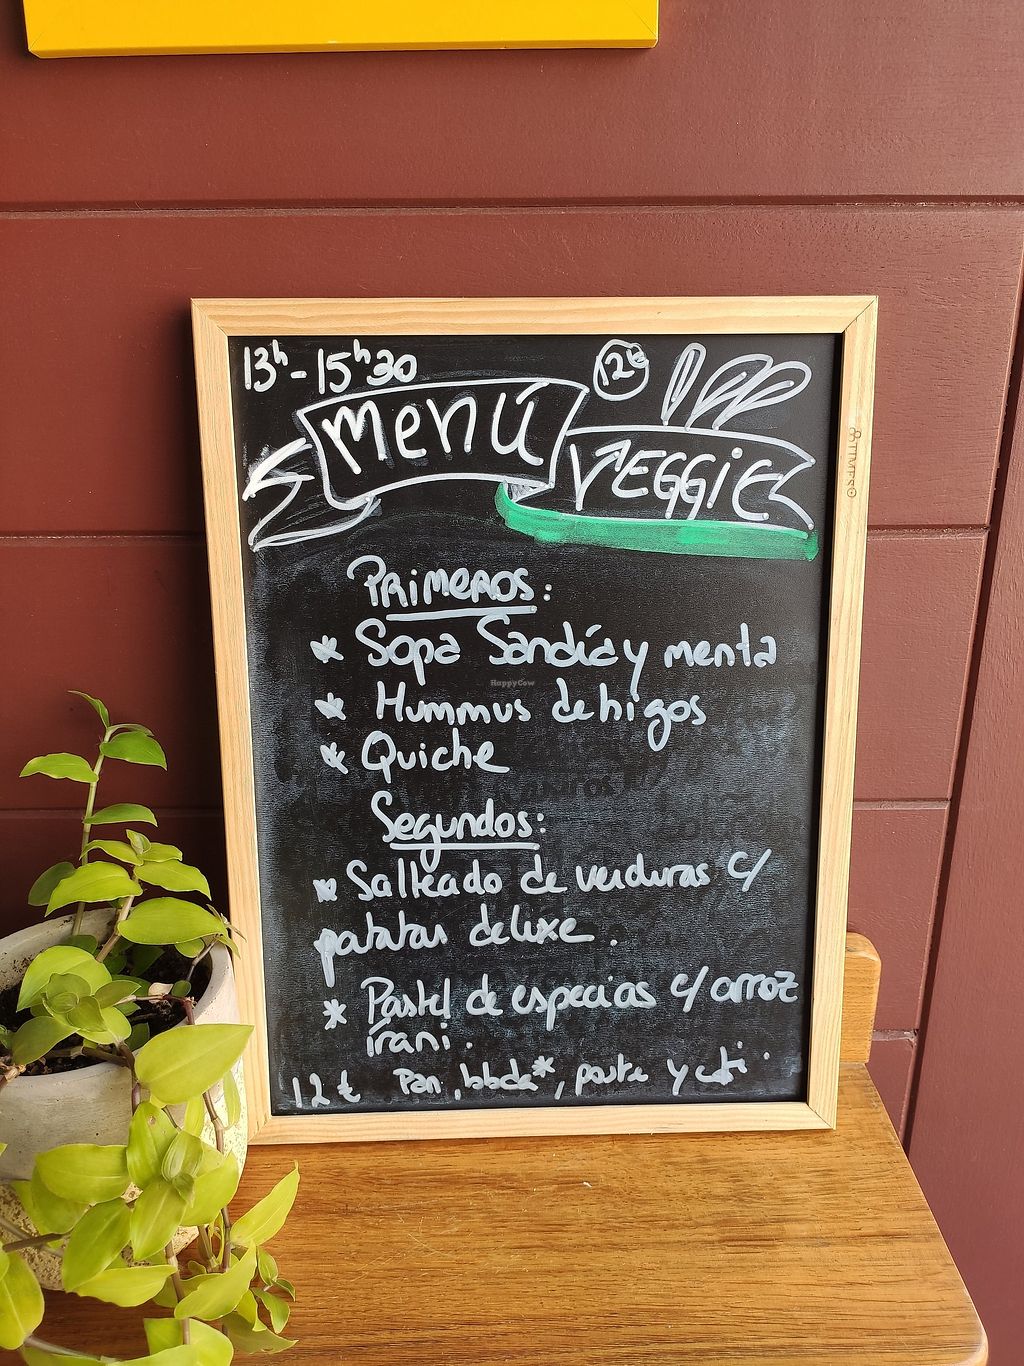 13h - 15h30
12€
Menú
VEGGIE
TIMES
PRIMEROS:
* Sopa Sandía y menta
* Hummus de higos
HappyCow
* Quiche
Segundos:
* Salteado de verduras c/
patatas deluxe.
* Pastel de especias c/ arroz
irani.
12€ Pan, bbda*, postre y café.